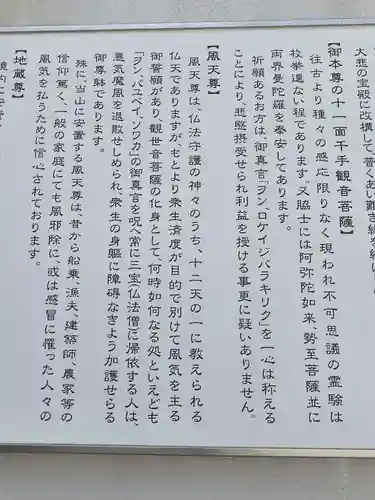 大悲の宝殿に改構して、普くあい難き縁を結
【御本尊の十一面千手観音菩薩】
往古より種々の感応限りなく現われ不可思議の霊験は
枚挙遑ない程であります。又脇士には阿弥陀如来、勢至菩薩並に
両界曼陀羅を奉安してあります。
祈願あるお方は、御真言「ヲン、ロケイジバラキリク」を一心は称える
ことにより、悲慾摂受せられ利益を授ける事更に疑いありません。
【風天尊】
風天尊は、仏法守護の神々のうち、十二天の一に教えられる
仏天でありますが、もとより衆生済度が目的で別けて風気を主る
御誓願があり、観世音菩薩の化身として、何時如何なる処といえども
「ヲン、バユベイ、ソワカ」の御真言を呪へ常に三宝（仏法僧）に帰依する人は、
悪気魔風を退散せしめられ、衆生の身軀に障碍なきよう加護せらる
御尊躰であります。
殊に、当山に安置する風天尊は、昔から船乗、漁夫、建築師、農家等の
信仰篤く、一般の家庭にても風邪除に、或は感冒に罹った人々の
風気を払うために信心されております。
【地蔵尊】
境内に安置